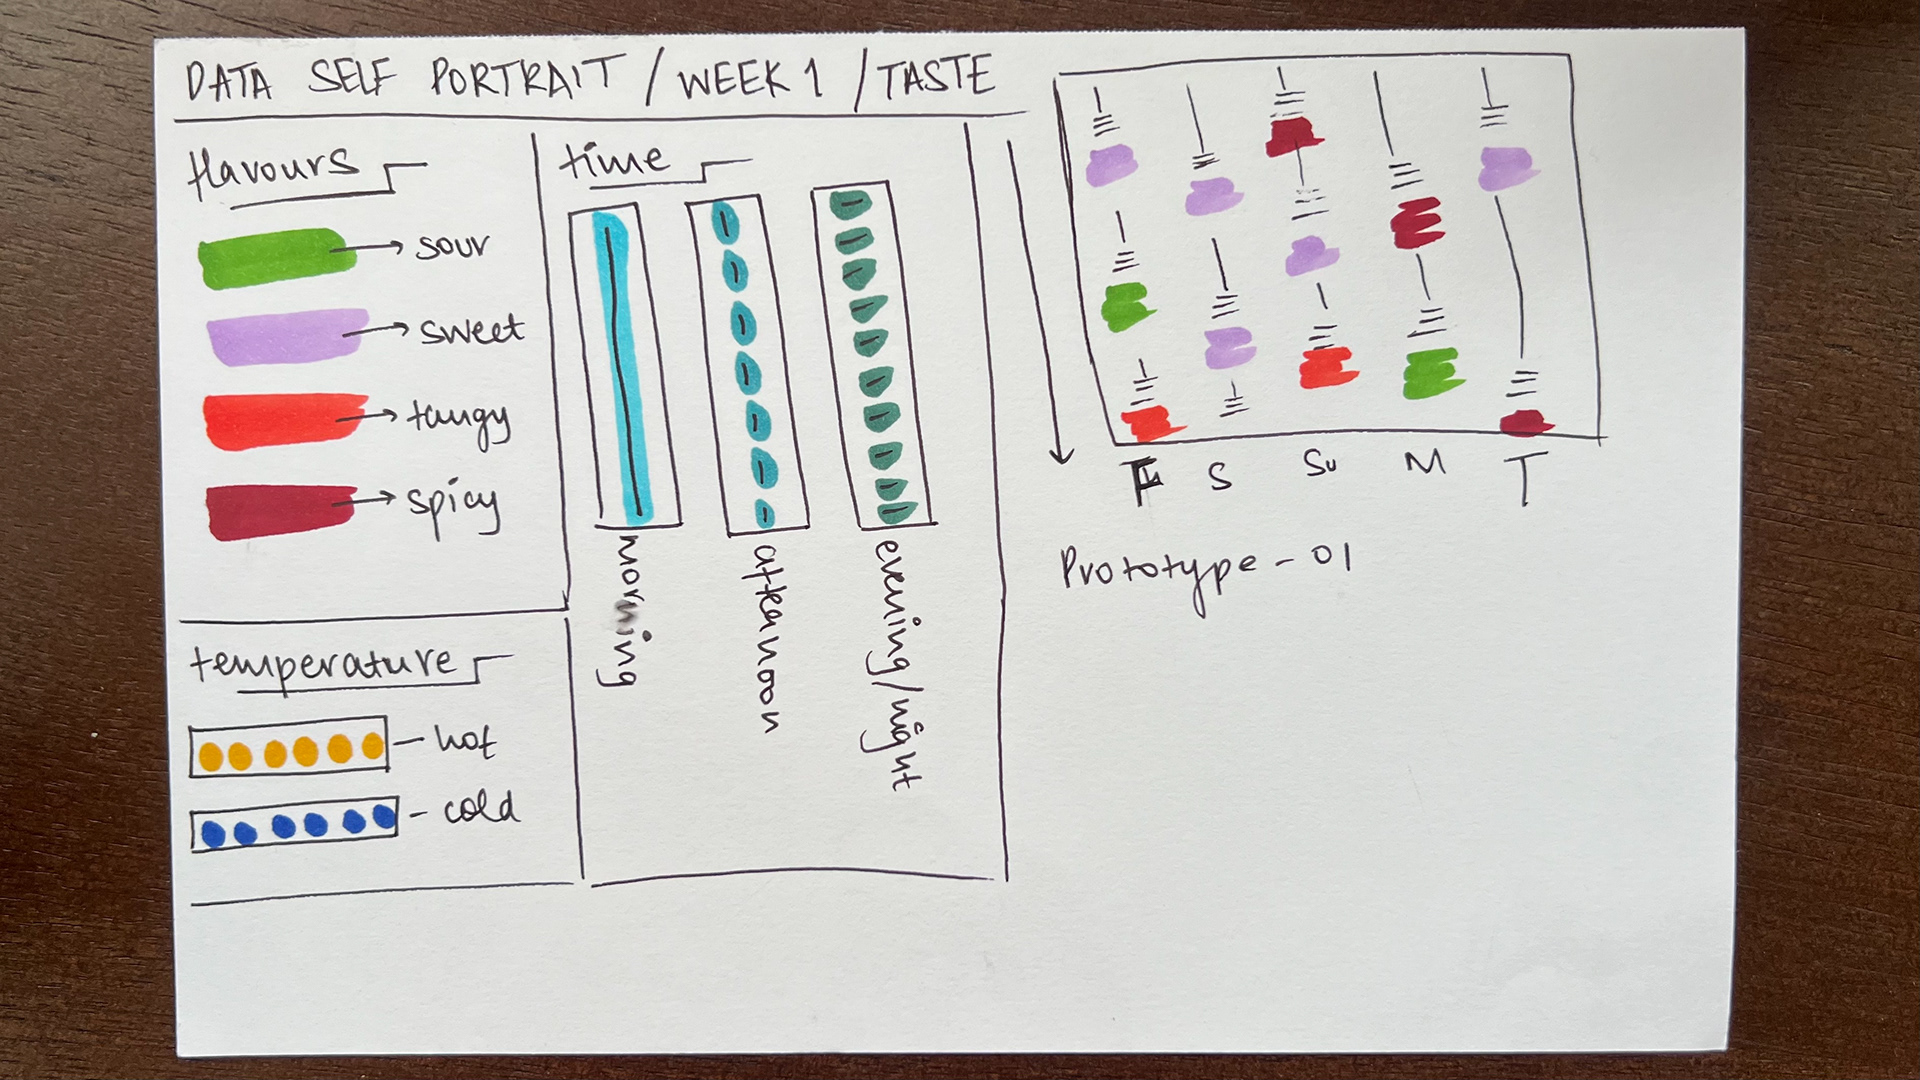 DATA SELF PORTRAIT / WEEK 1 / TASTE
flavours
sour
sweet
tangy
spicy
temperature
hot
cold
time
morning
afternoon
evening/night
F S Su M T
Prototype - 01